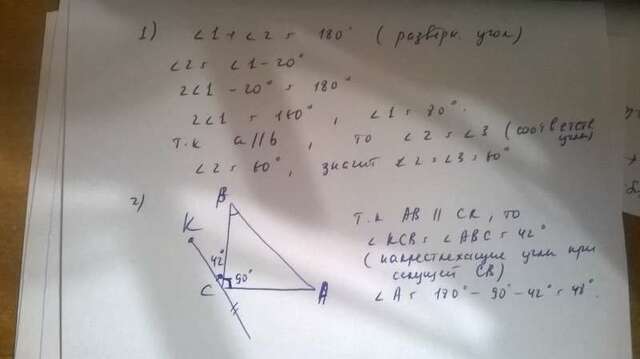 1) ∠1 + ∠2 = 180° (разверн. угол)
∠2 = ∠1 - 20°
2∠1 - 20° = 180°
2∠1 = 160°, ∠1 = 80°.
т.к a||b, то ∠2 = ∠3 (соответств углы)
∠2 = 60°, значит ∠2 = ∠3 = 60°
2)
B
K
42°
C
90°
A
т.к AB || CK, то
∠KCB = ∠ABC = 42°
(накрестлежащие углы при
секущей CB)
∠A = 180° - 90° - 42° = 48°.